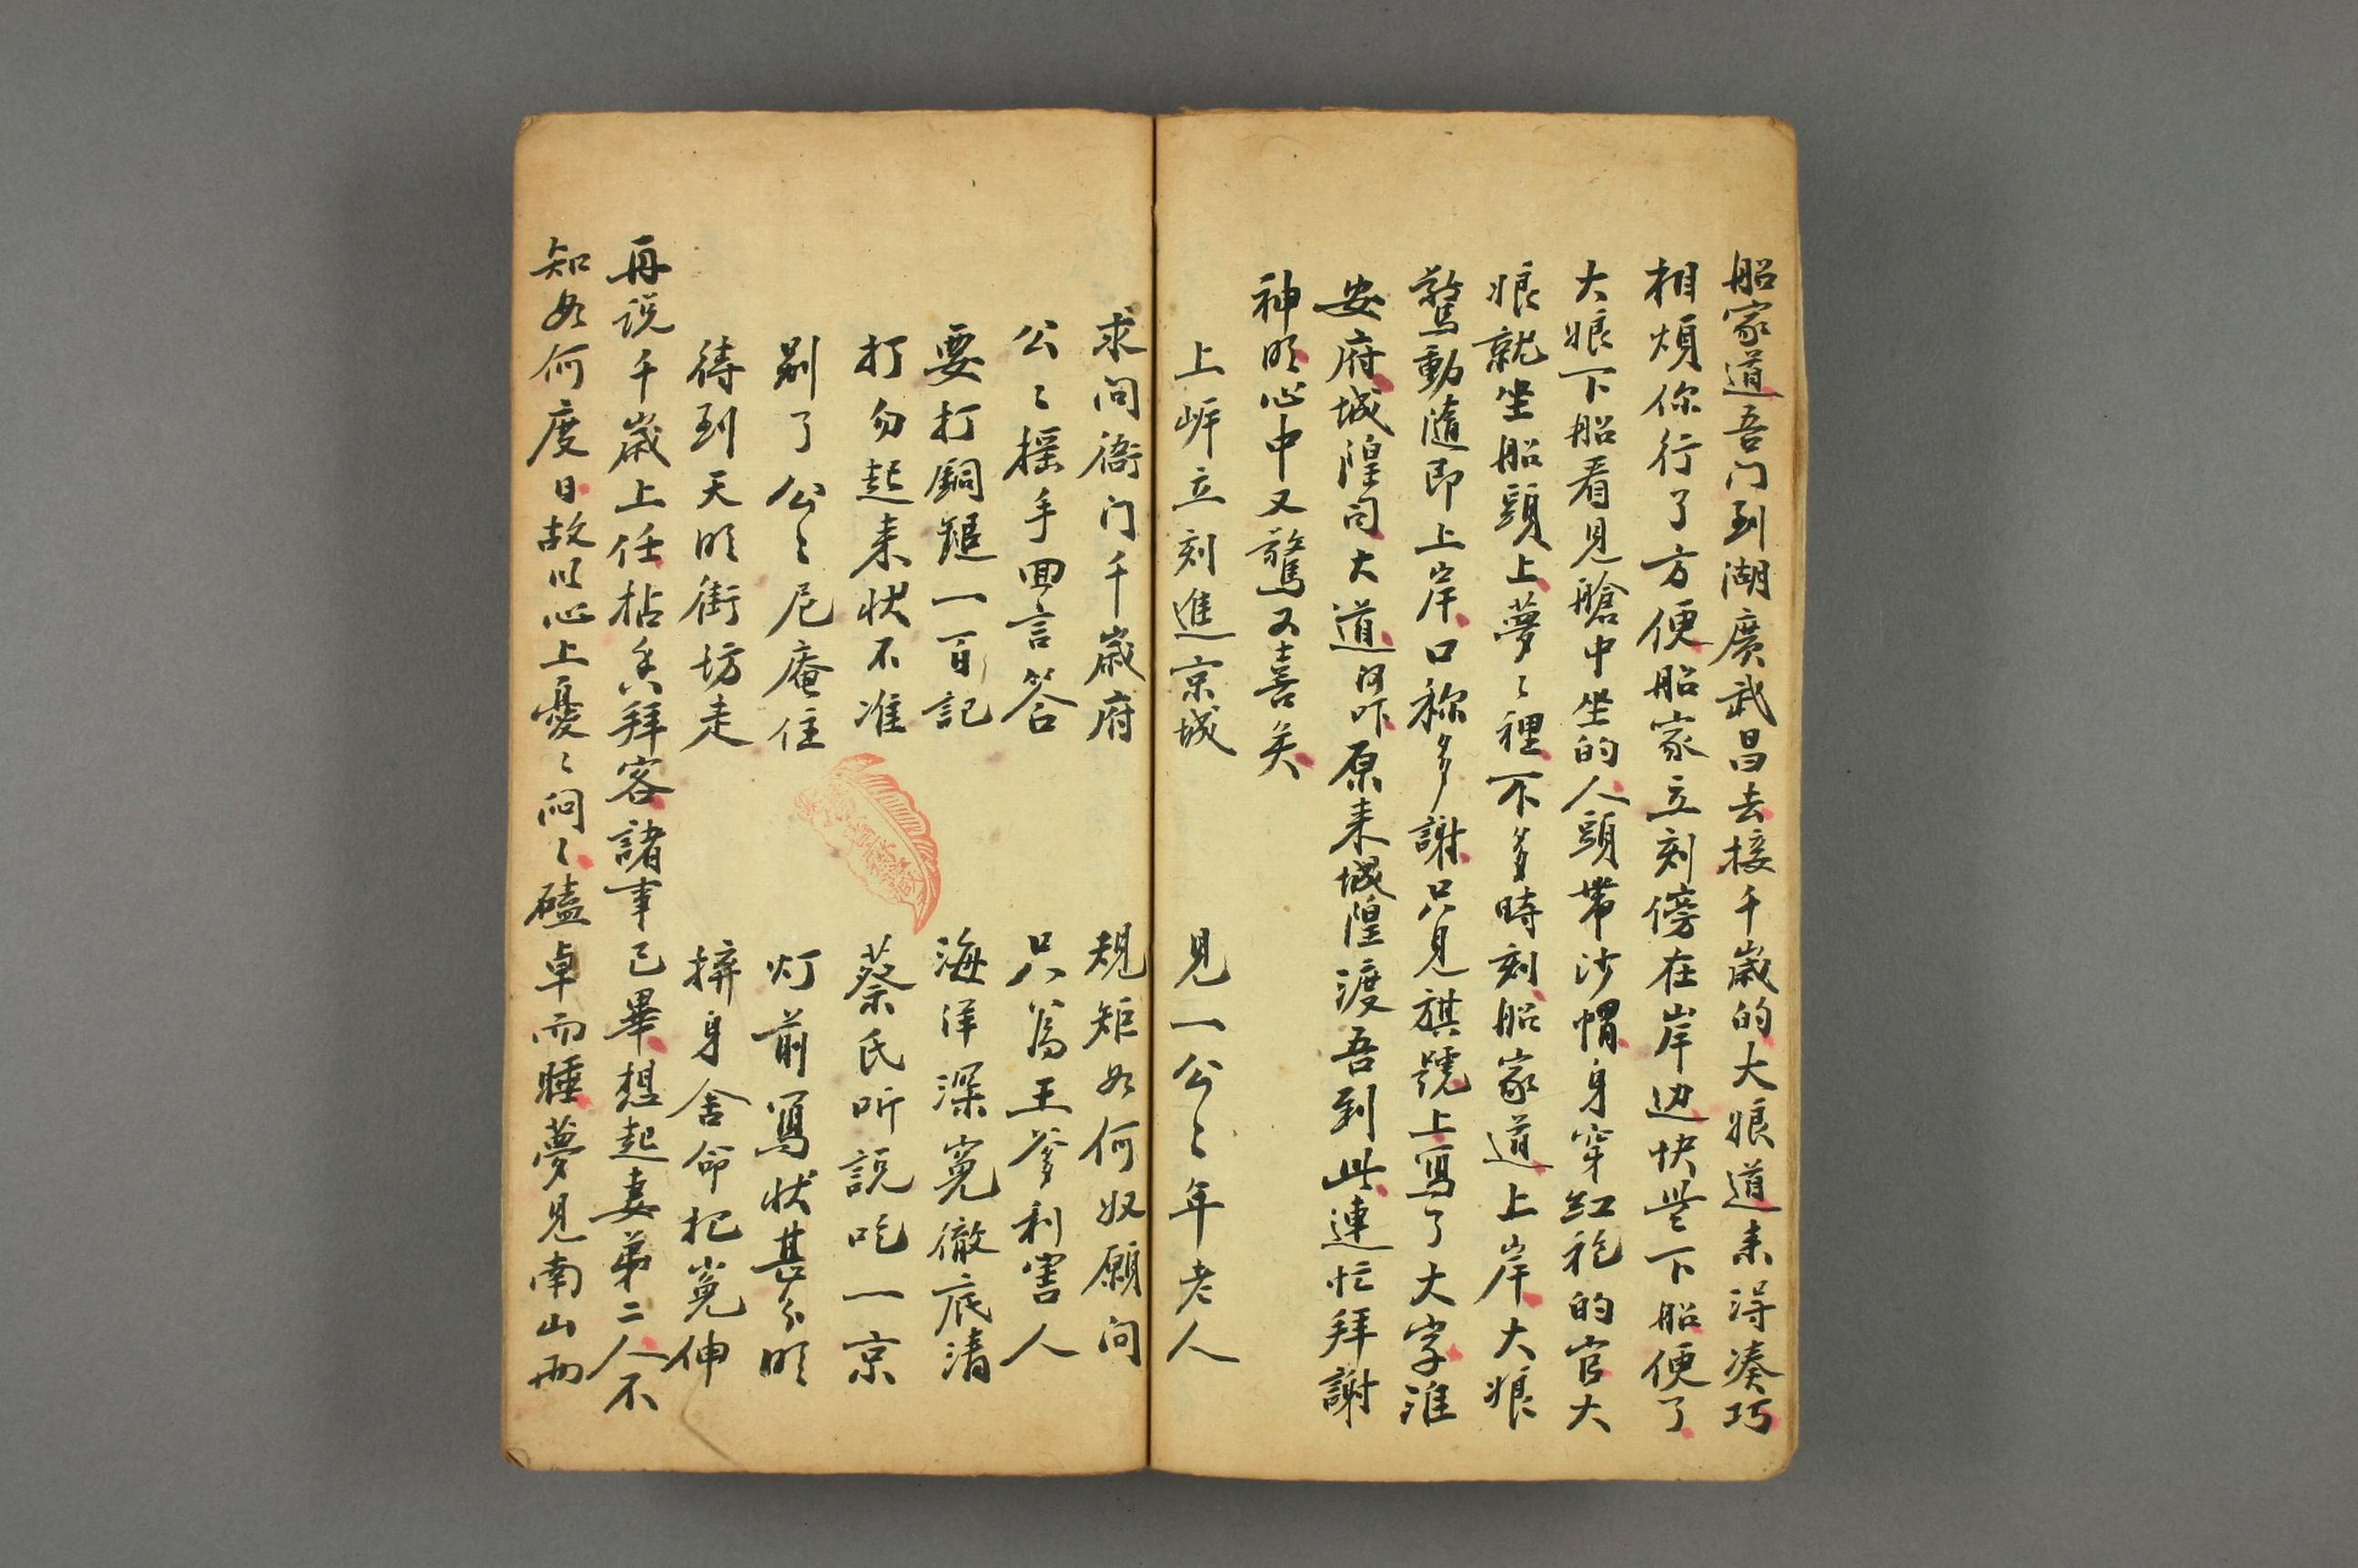 船家道吾门到湖廣武昌去接千歲的大娘道来得凑巧
相煩你行了方便船家立刻傍在岸边快些下船便了
大娘下船看見艙中坐的人頭帶沙帽身穿红袍的官大
娘就坐船頭上夢〻裡不多時刻船家道上岸大娘
驚動隨即上岸口称多謝只見旗號上寫了大字淮
安府城隍司大道原来城隍渡吾到此連忙拜謝
神明心中又驚又喜矣
上岸立刻進京城 見一公〻年老人
求问衙门千歲府 規矩如何奴願问
公〻摇手回言答 只為王爹利害人
要打銅鎚一百記 海洋深寃徹底清
打勿起来状不准 蔡氏听説吃一京
别了公〻尼庵住 灯前寫状甚分明
待到天明街坊走 拚身舍命把寃伸
再说千歲上任拈香拜客諸事已畢想起妻弟二人不
知如何度日故以心上憂〻闷〻磕卓而睡夢見南山两